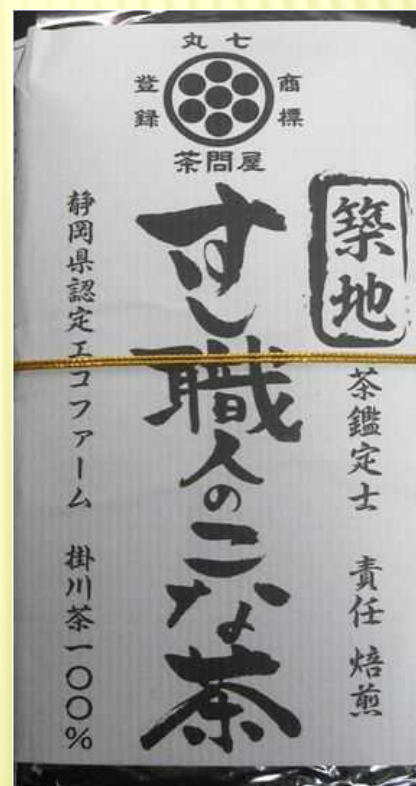 丸七
登録
商標
茶問屋
築地
茶鑑定士 責任 焙煎
すし職人のこな茶
静岡県認定エコファーム 掛川茶一〇〇%